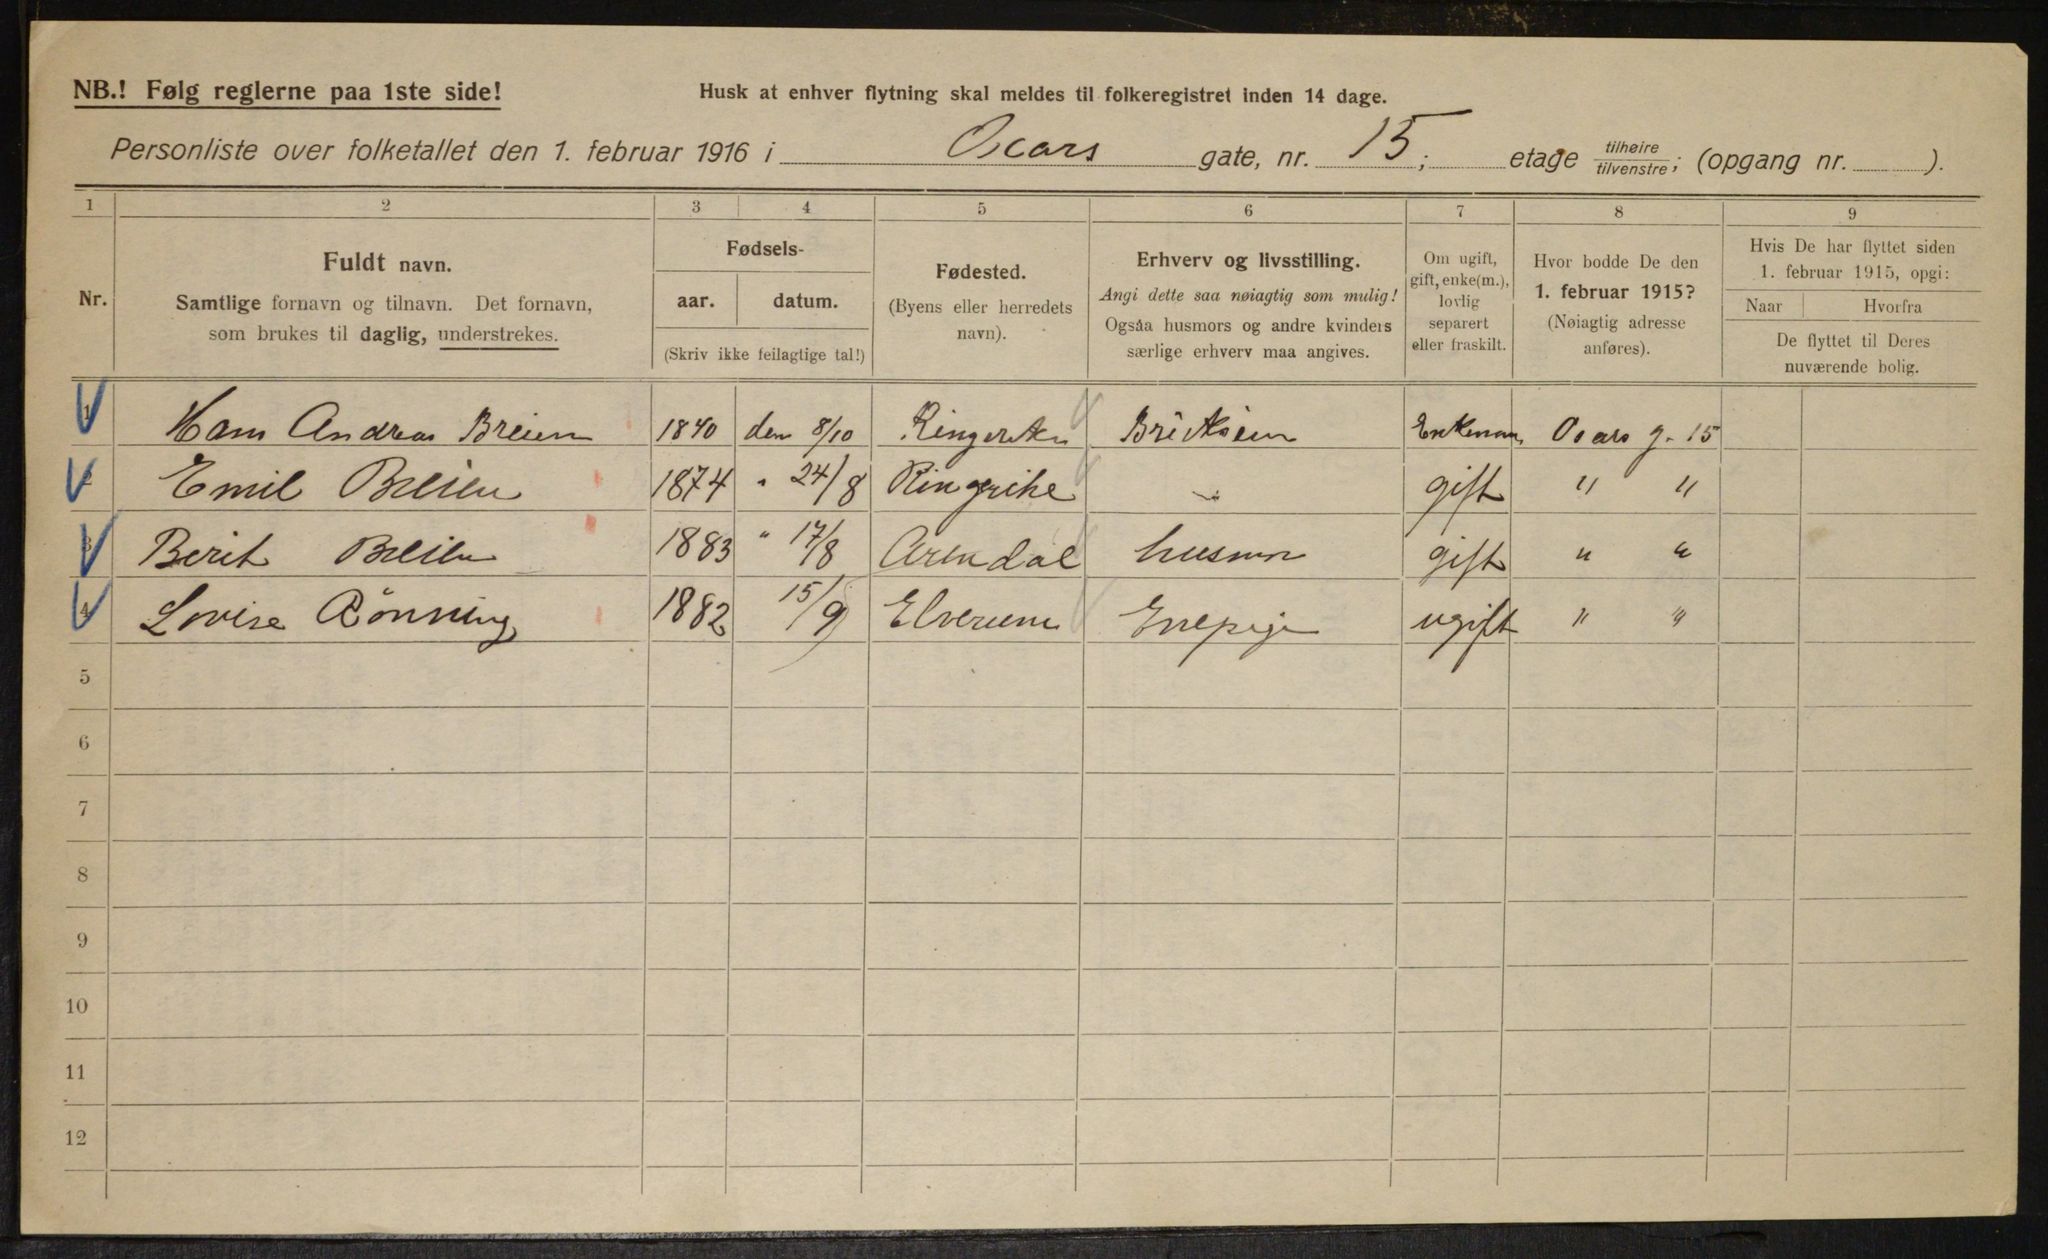 NB.! Følg reglerne paa 1ste side!
Husk at enhver flytning skal meldes til folkeregistret inden 14 dage.
Personliste over folketallet den 1. februar 1916 i Oscars gate, nr. 15; etage tilhøire/tilvenstre; (opgang nr. ).
1 2 3 4 5 6 7 8 9
Nr.
Fuldt navn.
Samtlige fornavn og tilnavn. Det fornavn,
som brukes til daglig, understrekes.
Fødsels-
aar. datum.
(Skriv ikke feilagtige tal!)
Fødested.
(Byens eller herredets
navn).
Erhverv og livsstilling.
Angi dette saa nøiagtig som mulig!
Ogsåa husmors og andre kvinders
særlige erhverv maa angives.
Om ugift,
gift, enke(m.),
lovlig
separert
eller fraskilt.
Hvor bodde De den
1. februar 1915?
(Nøiagtig adresse
anføres).
Hvis De har flyttet siden
1. februar 1915, opgi:
Naar Hvorfra
De flyttet til Deres
nuværende bolig.
1 Hans Andreas Breien 1840 den 8/10 Ringerike Enkeman Oscars g. 15
2 Emil Breien 1874 " 24/8 Ringerike gift " "
3 Berit Breien 1883 " 17/8 Arendal husmor gift " "
4 Lovise Rönning 1882 15/9 Elverum Enepige ugift " "
5
6
7
8
9
10
11
12